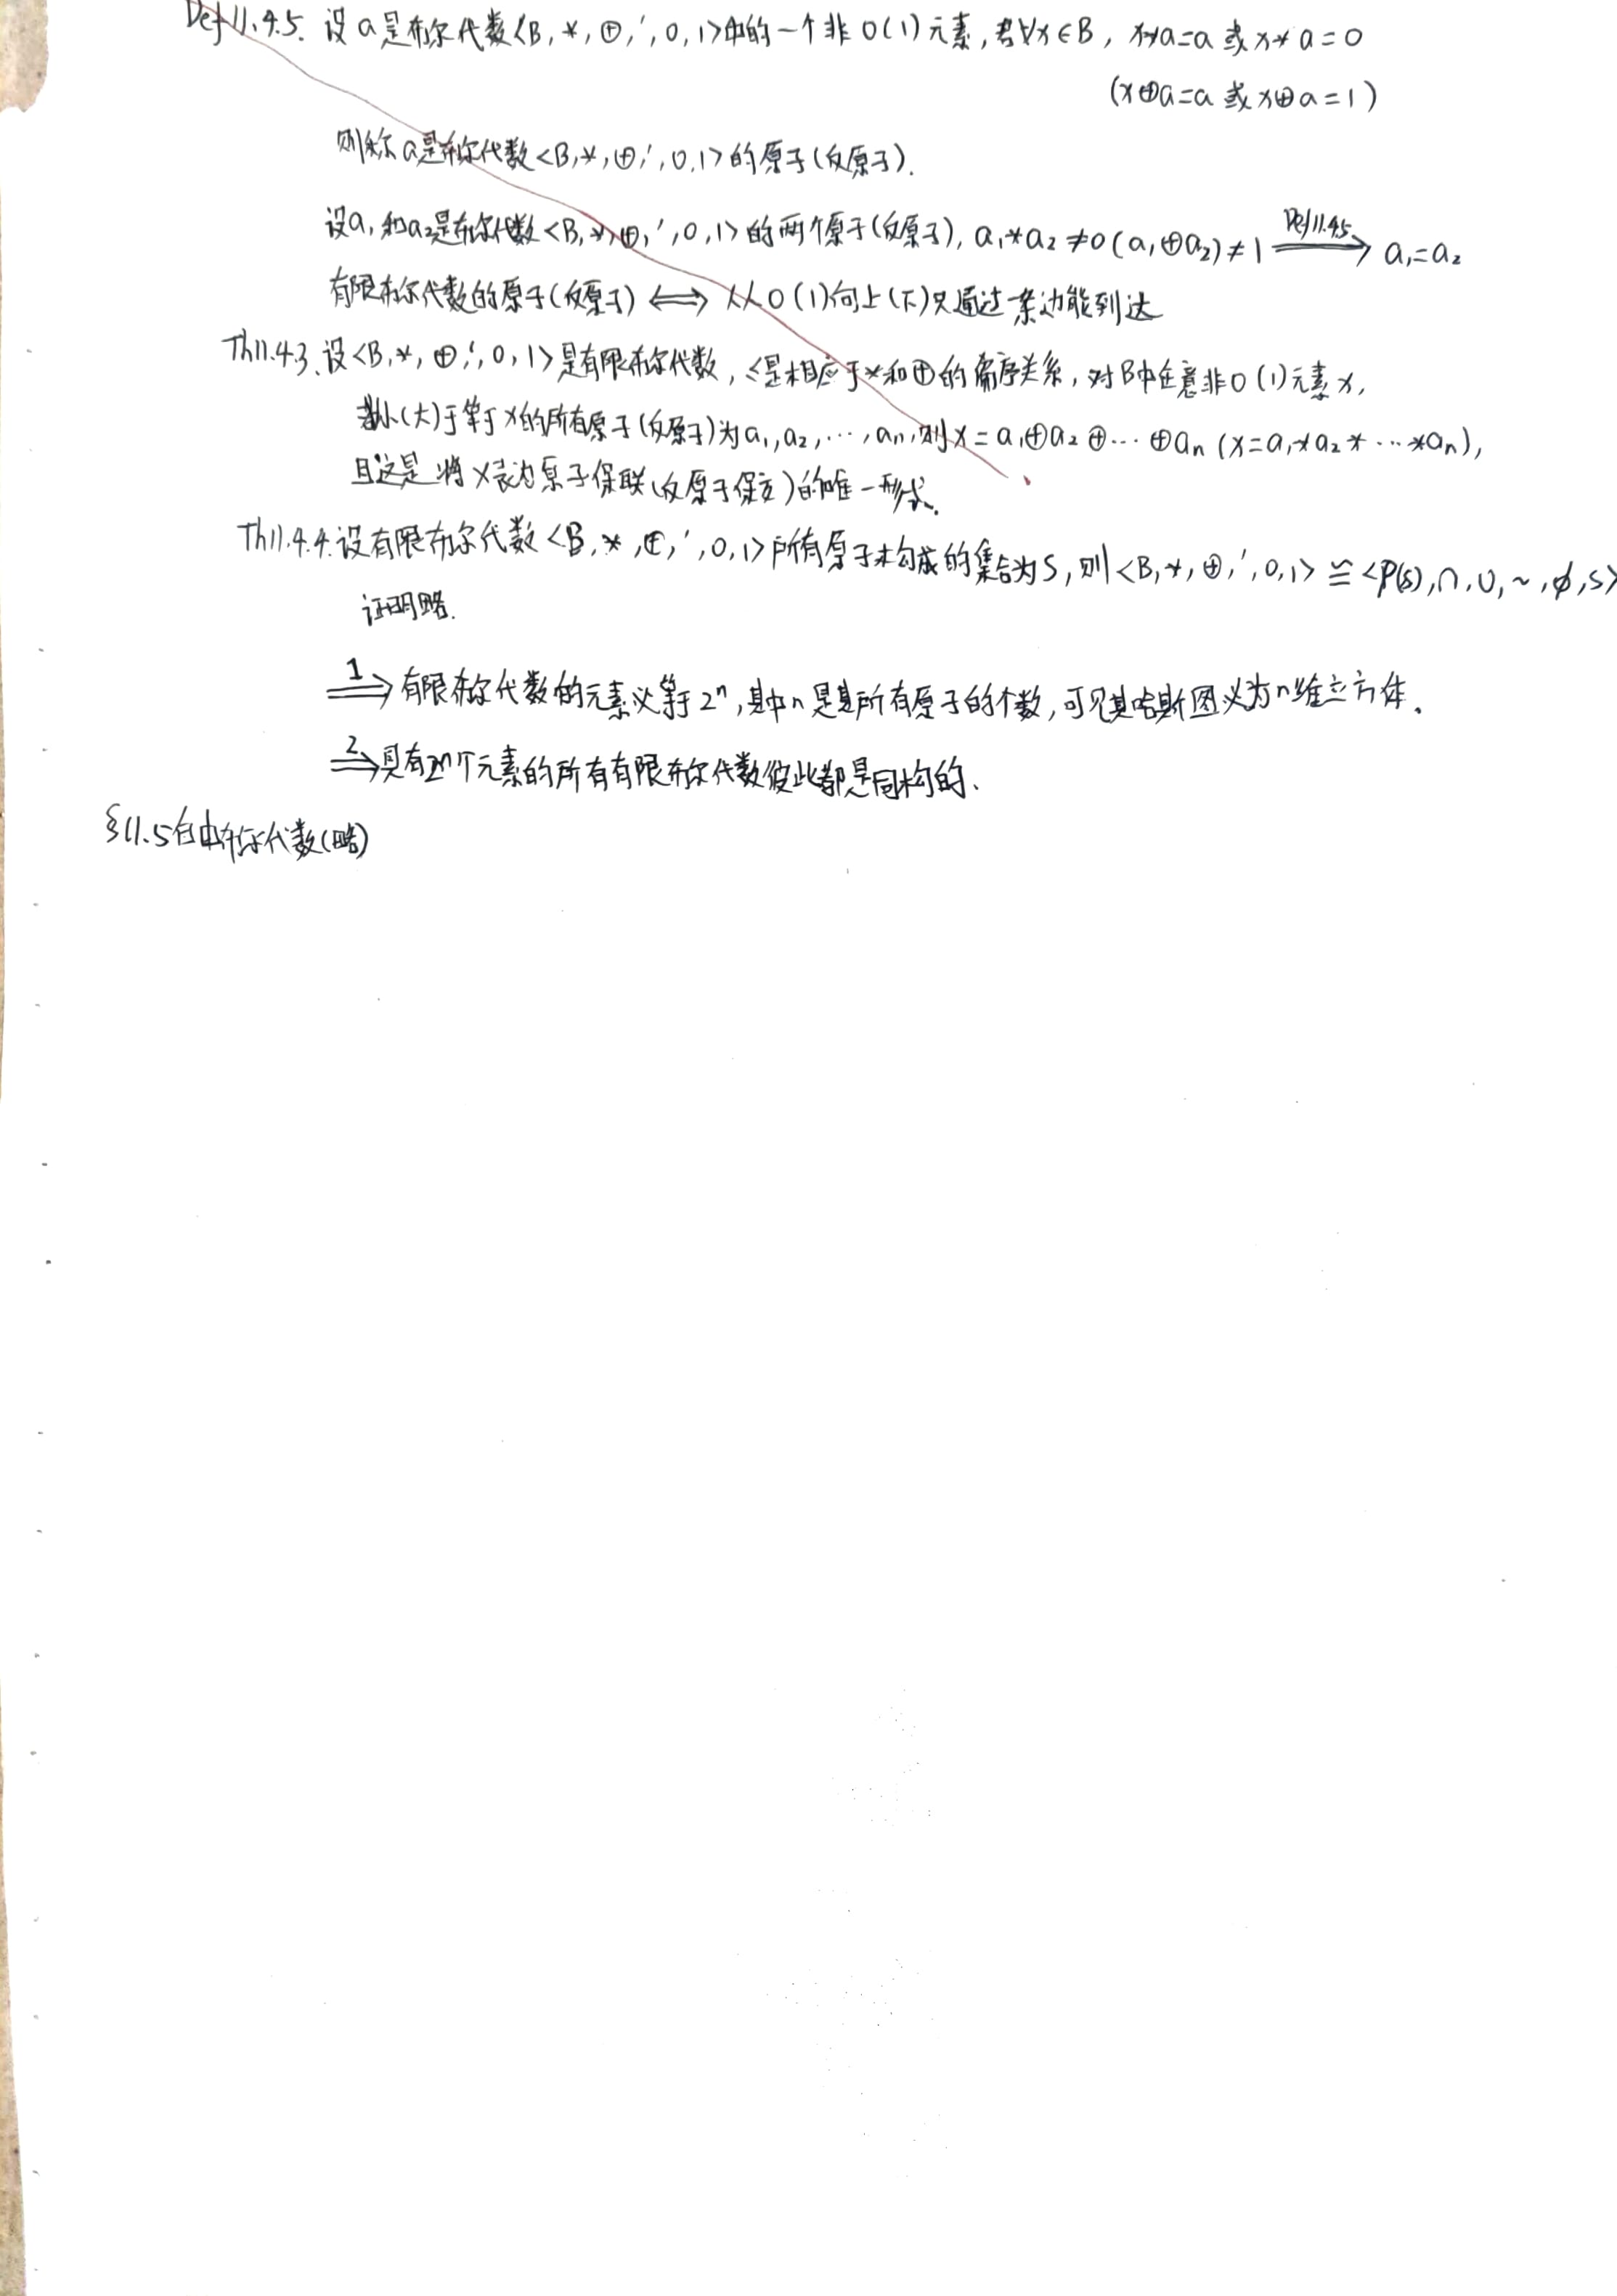 Def 11.4.5. 设a是布尔代数<B, *, ⊕, ′, 0, 1>中的一个非0(1)元素, 若∀x∈B, x*a=a 或 x*a=0
(x⊕a=a 或 x⊕a=1)
则称a是布尔代数<B, *, ⊕, ′, 0, 1>的原子(反原子).
设a₁和a₂是布尔代数<B, *, ⊕, ′, 0, 1>的两个原子(反原子), a₁*a₂≠0(a₁⊕a₂)≠1 ⟹ (Def 11.4.5) a₁=a₂
有限布尔代数的原子(反原子) ⟺ 从0(1)向上(下)只通过一条边能到达
Th11.4.3. 设<B, *, ⊕, ′, 0, 1>是有限布尔代数, ≤是相应于*和⊕的偏序关系, 对B中任意非0(1)元素x,
小(大)于等于x的所有原子(反原子)为a₁, a₂, ⋯, aₙ, 则x=a₁⊕a₂⊕⋯⊕aₙ (x=a₁*a₂*⋯*aₙ),
且这是将x表为原子保联(反原子保交)的唯一形式.
Th11.4.4. 设有限布尔代数<B, *, ⊕, ′, 0, 1>所有原子构成的集合为S, 则<B, *, ⊕, ′, 0, 1> ≅ <P(S), ∩, ∪, ~, ∅, S>
证明略.
1⟹ 有限布尔代数的元素必等于2ⁿ, 其中n是其所有原子的个数, 可见其哈斯图必为n维立方体.
2⟹ 具有2ⁿ个元素的所有有限布尔代数彼此都是同构的.
§11.5 自由布尔代数(略)